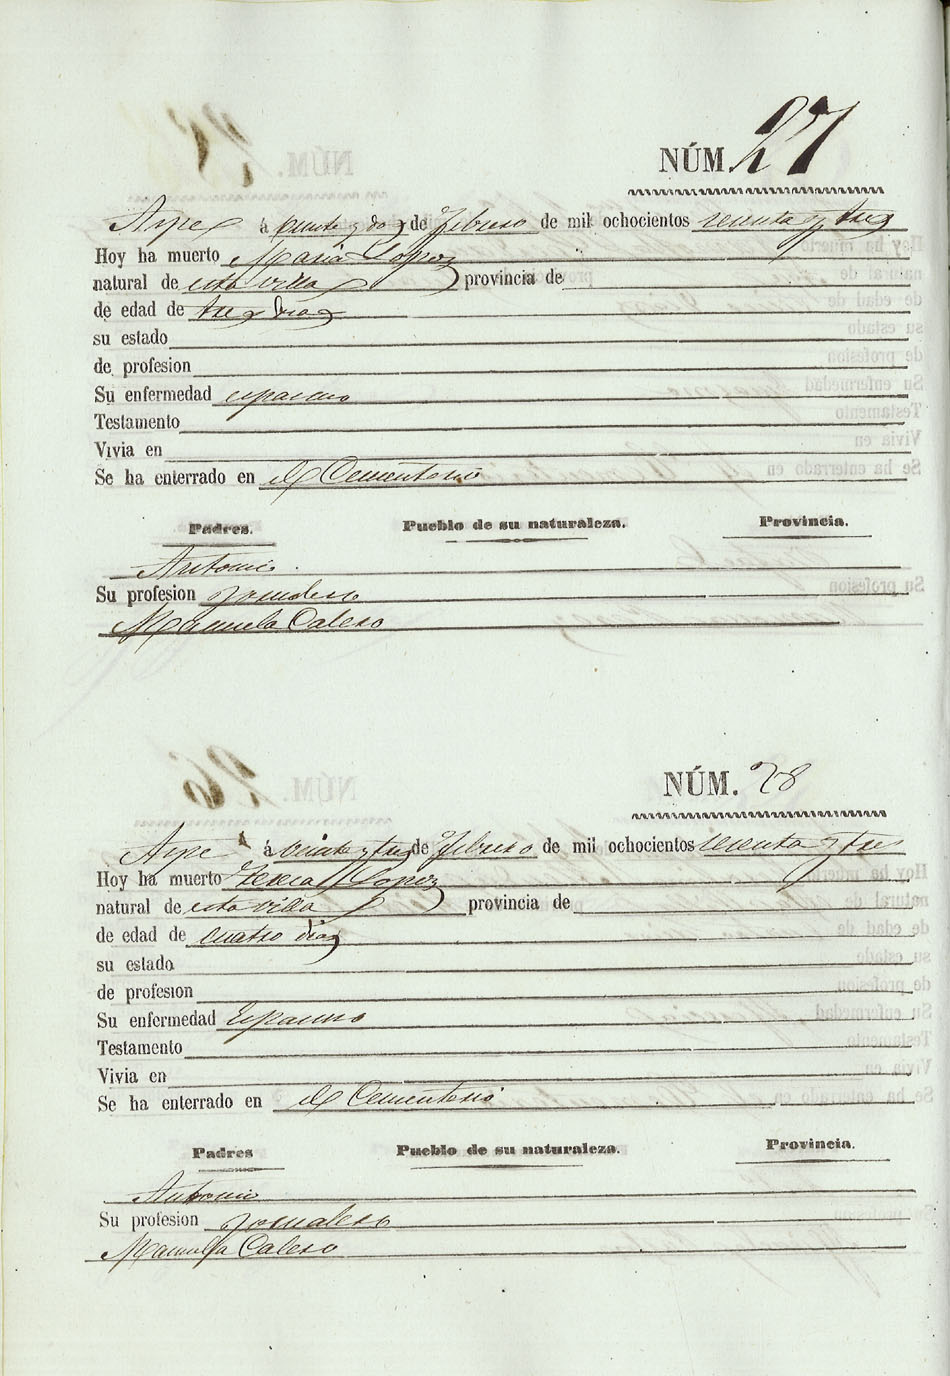 NÚM. 27
Aspe á veinte y dos de Febrero de mil ochocientos sesenta y tres
Hoy ha muerto Maria Lopez
natural de esta villa provincia de
de edad de tres dias
su estado
de profesion
Su enfermedad espasmo
Testamento
Vivia en
Se ha enterrado en el Cementerio
Padres. Pueblo de su naturaleza. Provincia.
Antonio
Su profesion Jornalero
Manuela Calero
NÚM. 28
Aspe á veinte y tres de Febrero de mil ochocientos sesenta y tres
Hoy ha muerto Lopez
natural de esta villa provincia de
de edad de cuatro dias
su estado
de profesion
Su enfermedad Espasmo
Testamento
Vivia en
Se ha enterrado en el Cementerio
Padres Pueblo de su naturaleza. Provincia.
Antonio
Su profesion Jornalero
Manuela Calero